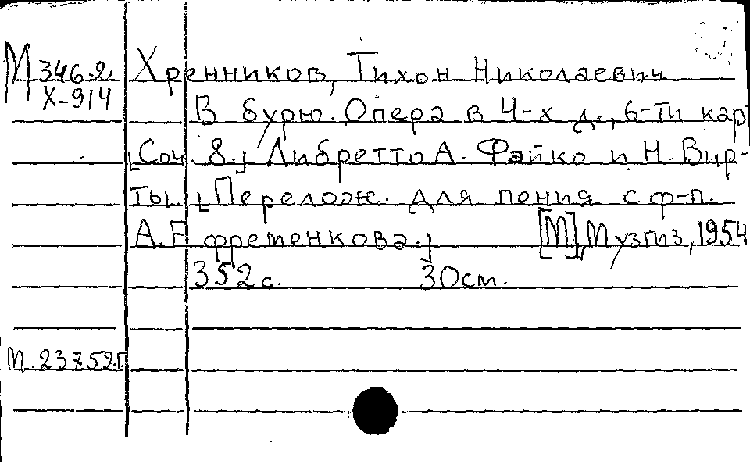 М 346.2. Хренников, Тихон Николаевич
Х-914
В бурю. Опера в 4-х д., 6-ти кар
[Соч. 8.] Либретто А. Файко и Н. Вир-
ты. [Перелож. для пения с ф-п.
А. Ефременкова.] [М], Музгиз, 1954
352 с. 30 см.